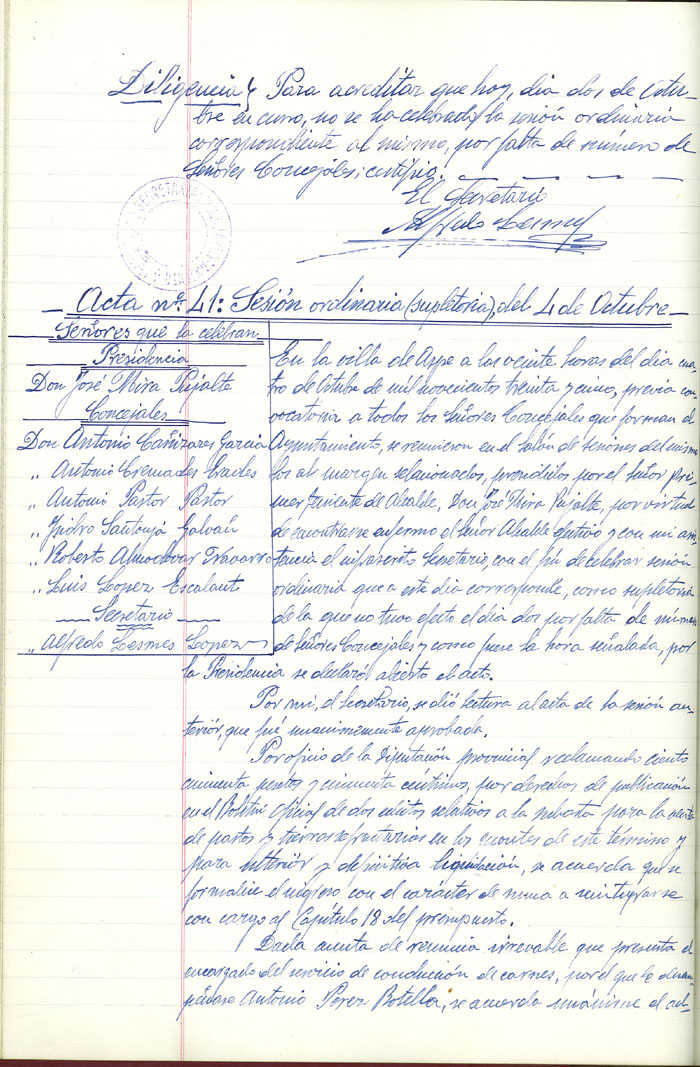 Diligencia Para acreditar que hoy, dia dos de Octu-
bre en curso, no se ha celebrado la sesión ordinaria
correspondiente al mismo, por falta de número de
Señores Concejales: certifico.
El Secretario
Alfredo Lesmes
Acta nº 41: Sesión ordinaria (supletoria), del 4 de Octubre
Señores que la celebran
Presidencia
Don José Mira Pujalte
Concejales
Don Antonio Cañizares Garcia
„ Antonio Cremades Eracles
„ Antonio Pastor Pastor
„ Ysidro Santonja Galvañ
„ Roberto Almodovar Navarro
„ Luis Lopez Escalant
Secretario
„ Alfredo Lesmes Lopez
En la villa de Aspe a las veinte horas del dia cua-
tro de Octubre de mil novecientos treinta y cinco, previa con-
vocatoria a todos los Señores Concejales que forman el
Ayuntamiento, se reunieron en el salón de sesiones del mismo
los al margen relacionados, presididos por el Señor pri-
mer teniente de Alcalde, Don José Mira Pujalte, por virtud
de encontrarse enfermo el Señor Alcalde efectivo y con mi asis-
tencia el infrascrito Secretario, con el fin de celebrar sesión
ordinaria que a este dia corresponde, como supletoria
de la que no tuvo efecto el dia dos por falta de número
de Señores Concejales y como fuese la hora señalada, por
la Presidencia se declaró abierto el acto.
Por mi, el Secretario, se dió lectura al acta de la sesión an-
terior, que fué unanimemente aprobada.
Por oficio de la Diputación provincial reclamando ciento
cincuenta pesetas y cincuenta céntimos, por derechos de publicación
en el Boletin Oficial de dos edictos relativos a la subasta para la venta
de pastos y tierras refractarias en los montes de este término y
para ulterior y definitiva liquidación, se acuerda que se
formalice el ingreso con el carácter de suma a reintegrarse
con cargo al Capitulo 18 del presupuesto.
Dada cuenta de renuncia que presenta el
encargado del servicio de conducción de carnes, por el que la desem-
peñase Antonio Perez Botella, se acuerda unánime el